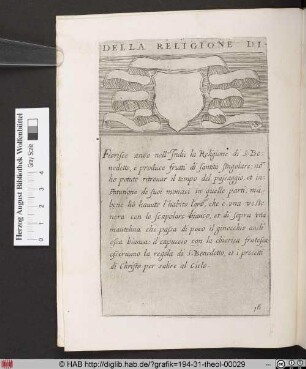 DELLA RELIGIONE DI.
Fiorisce anco nell'Indie la Religione di S. Be-
nedetto, e produce frutti di santità singolare; nō
ho potuto ritrovar il tempo del passaggio, et in
stitutione di suoi monaci in quelle parti, ma
bene hò hauuto l'habito loro, che è una veste
nera con lo scapolare bianco, et di sopra una
mantelina che passa di poco il ginocchio anch
essa bianca; il capuccio con la chierica fratesca
osservano la regola di S. Benedetto, et i precetti
di Christo per salire al Cielo.
16
Herzog August Bibliothek Wolfenbüttel
Gray Scale
© HAB http://diglib.hab.de/?grafik=194-31-theol-00029